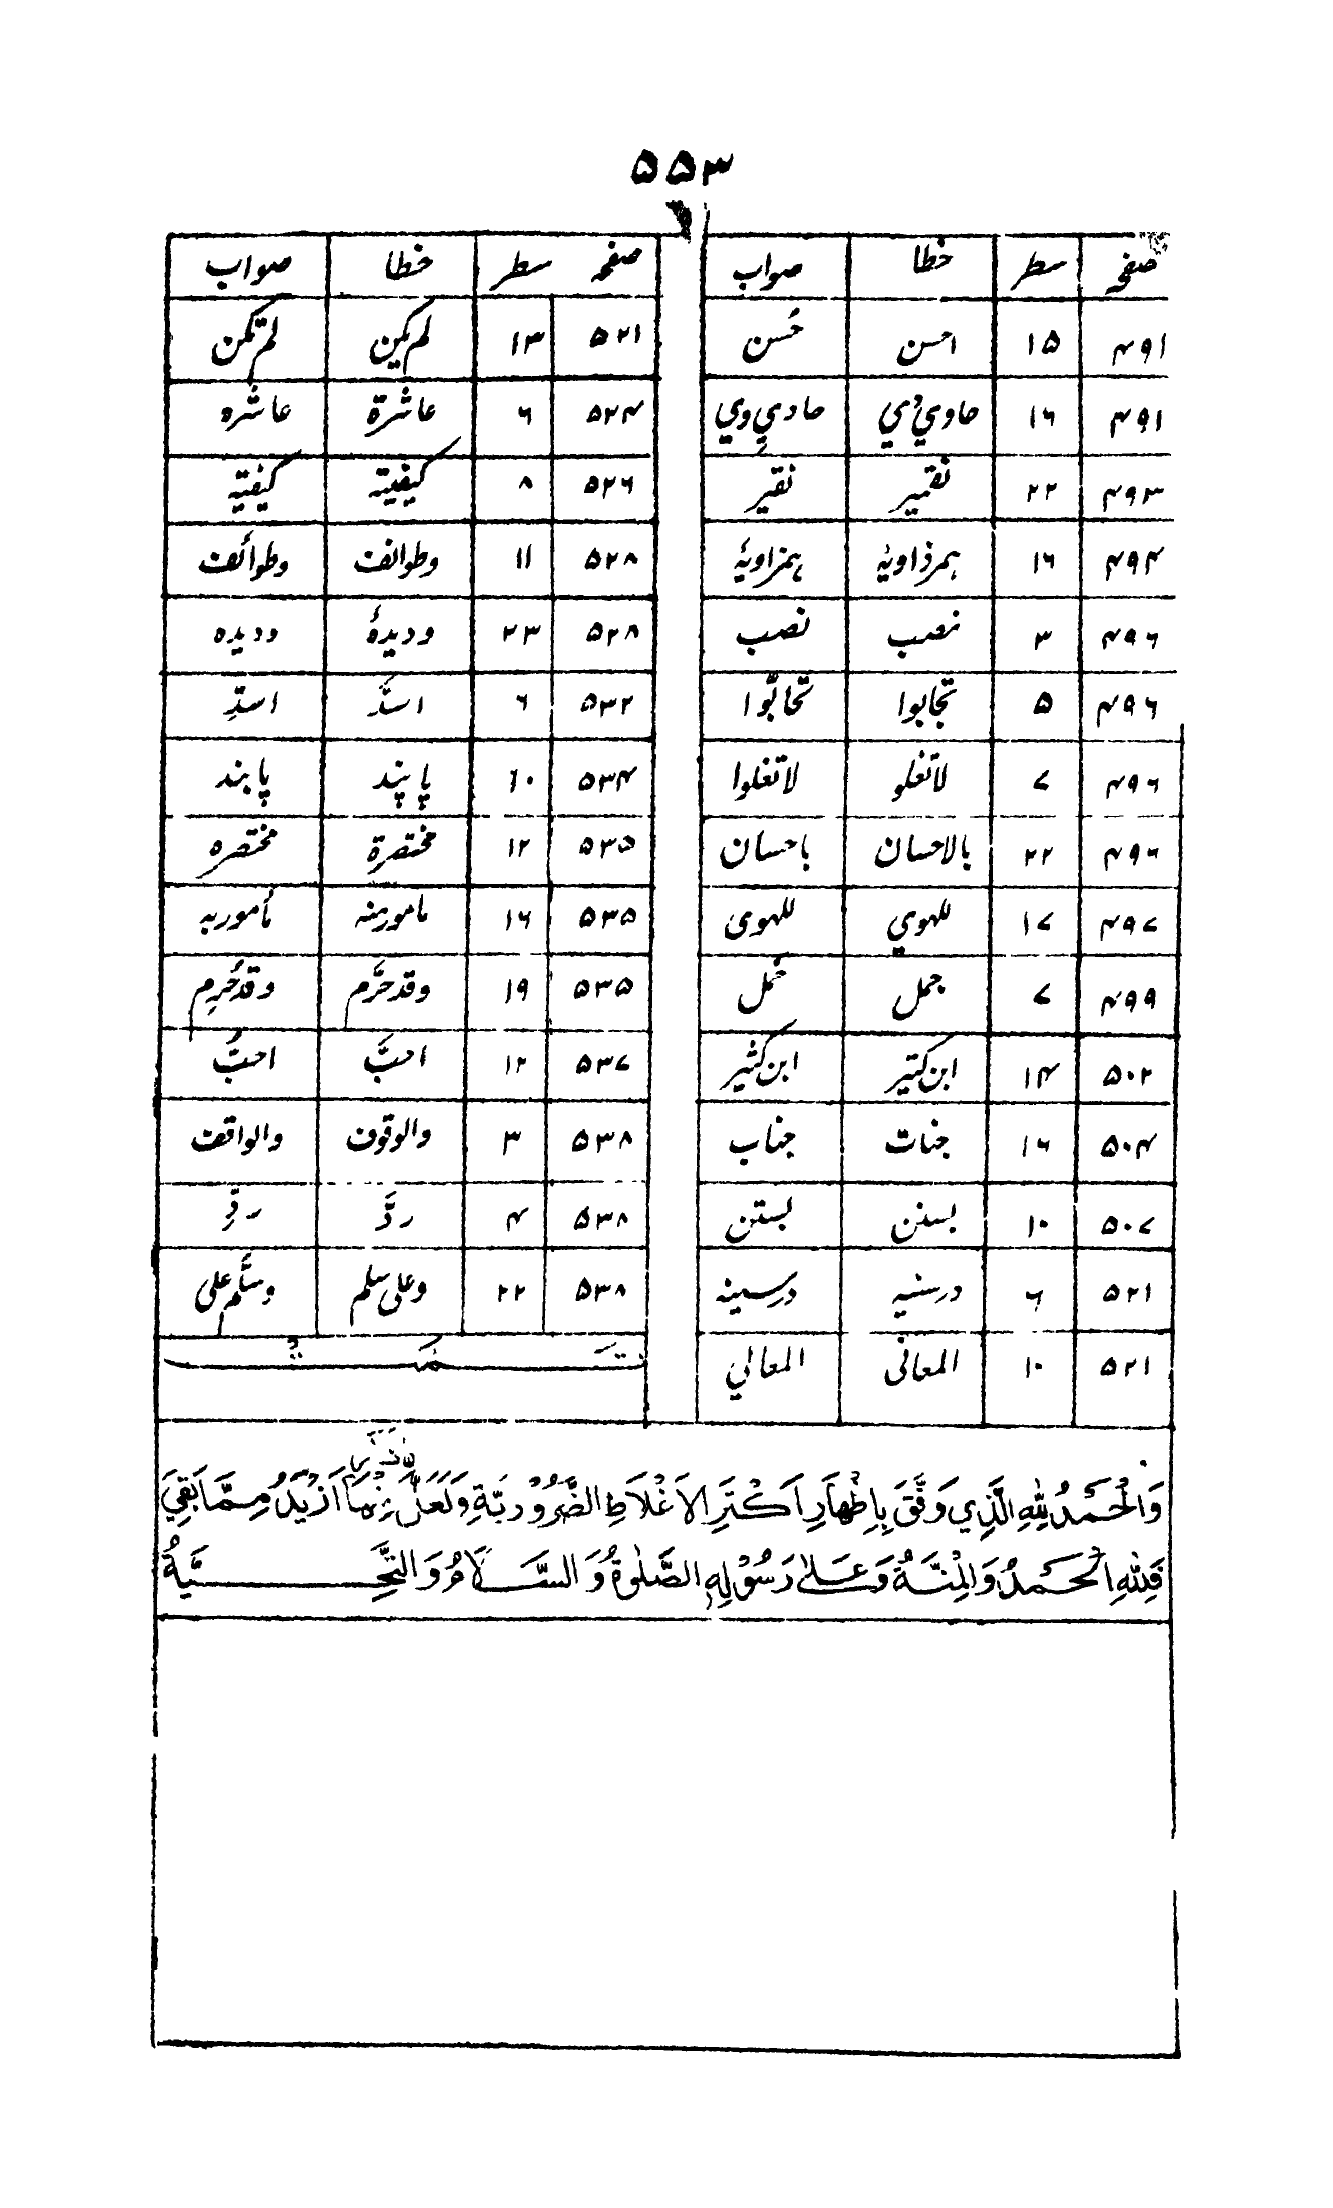 ۵۵۳
صفحہ سطر خطا صواب
۴۹۱ ۱۵ احسن حُسن
۴۹۱ ۱۶ حاوي وُي حادي وي
۴۹۳ ۲۲ نقمیر نقیر
۴۹۴ ۱۶ ہمرذاویۂ ہمزاویۂ
۴۹۶ ۳ نصب نصب
۴۹۶ ۵ تجابوا تحابّوا
۴۹۶ ۷ لاتغلو لاتغلوا
۴۹۶ ۲۲ بالاحسان باحسان
۴۹۷ ۱۷ للهوي للهوى
۴۹۹ ۷ جمل حُمل
۵۰۲ ۱۴ ابن کتیر ابن کثیر
۵۰۴ ۱۶ جنات جناب
۵۰۷ ۱۰ بسنن بستن
۵۲۱ ۶ درسنیه درسینه
۵۲۱ ۱۰ المعانی المعالي
صفحہ سطر خطا صواب
۵۲۱ ۱۳ لم یکین لم تکن
۵۲۴ ۶ عاشرة عاشره
۵۲۶ ۸ کیفیته کیفیته
۵۲۸ ۱۱ وطوانف وطوائف
۵۲۸ ۲۳ ودیدۂ ودیده
۵۳۲ ۶ اسدَّ اسدِّ
۵۳۴ ۱۰ پاپند پابند
۵۳۵ ۱۲ مختصرة مختصره
۵۳۵ ۱۶ مامورمنه مأموربه
۵۳۵ ۱۹ وقد حرَّم وقد حُرِم
۵۳۷ ۱۲ احبَّ احبُّ
۵۳۸ ۳ والوقوف والواقف
۵۳۸ ۴ ردَّ ردِّ
۵۳۸ ۲۲ وعلی سلم وسلَّم علی
تَمَّتْ
وَالْحَمْدُ لِلّٰهِ الَّذِي وَفَّقَ بِاِظْهَارِ اَكْثَرِ الاَغْلَاطِ الضَّرُوْرِيَّةِ وَلَعَلَّ مَا اَزِيْدُ مِمَّا بَقِيَ
فَلِلّٰهِ الْحَمْدُ وَالْمِنَّةُ وَعَلٰى رَسُوْلِهِ الصَّلٰوةُ وَالسَّلَامُ وَالتَّحِيَّةُ